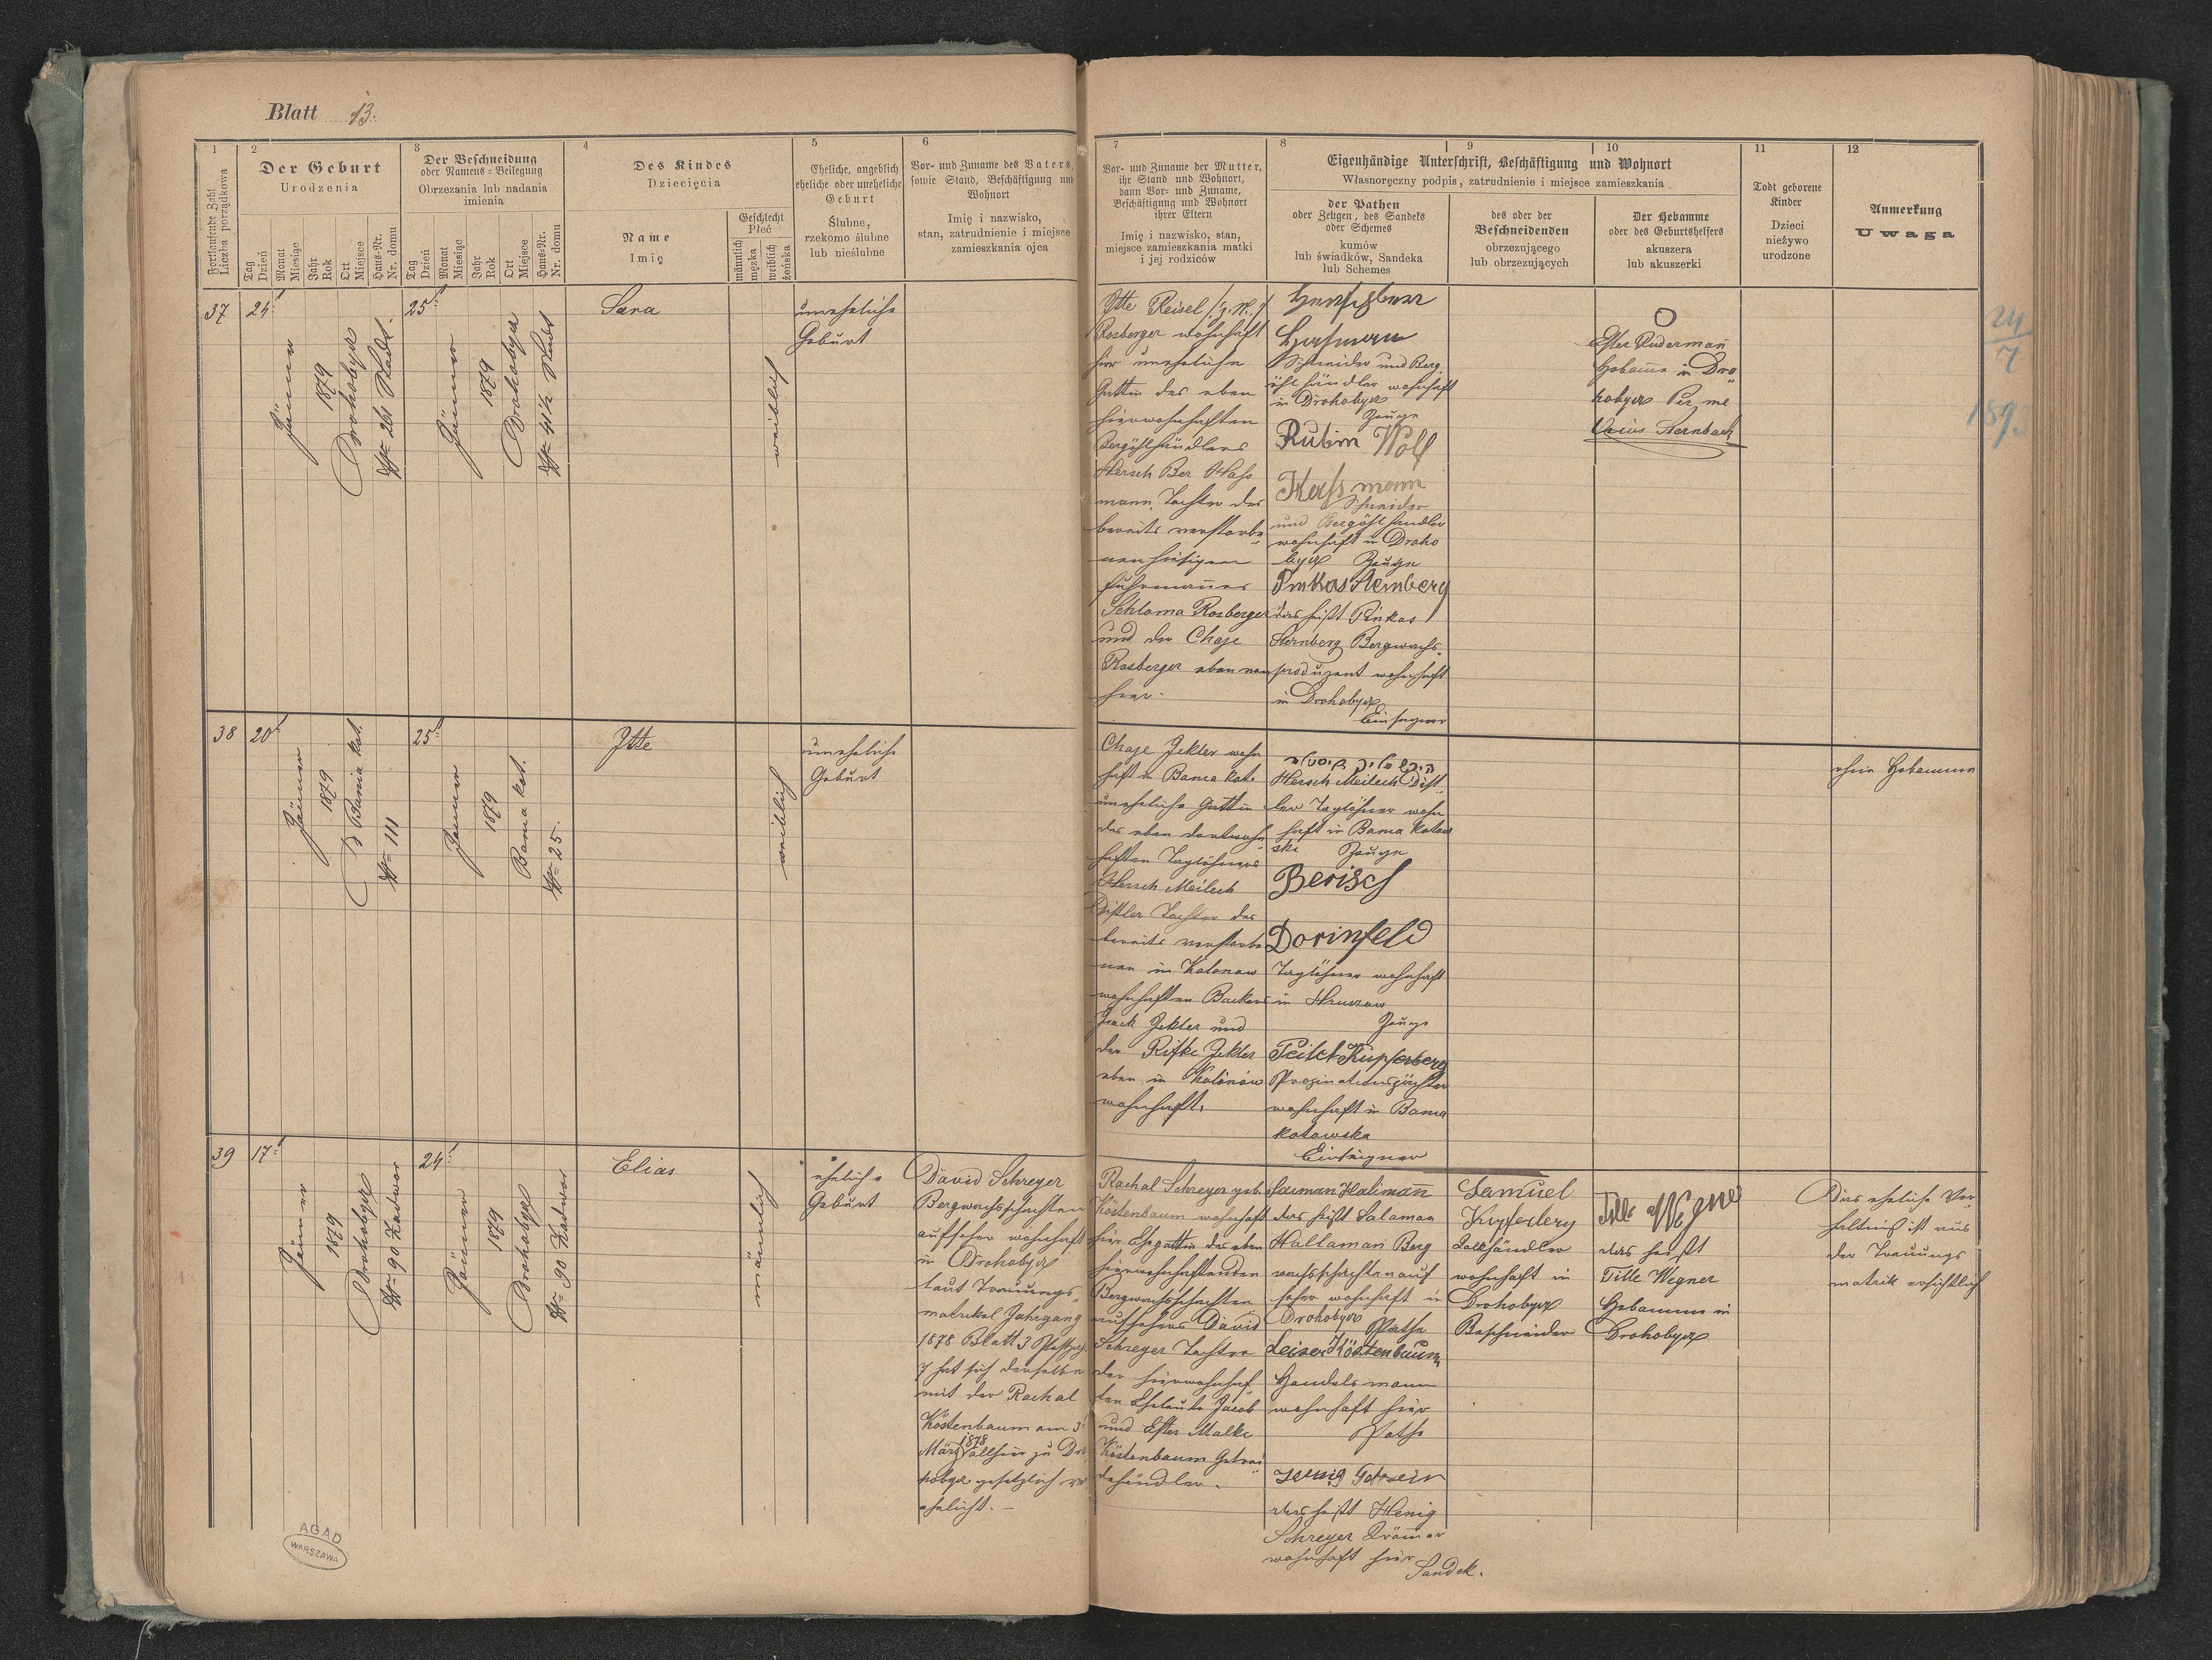 Blatt 13.
1
Fortlaufende Zahl
Liczba porządkowa
2
Der Geburt
Urodzenia
Tag
Dzień
Monat
Miesiąc
Jahr
Rok
Ort
Miejsce
Haus-Nr.
Nr. domu
3
Der Beschneidung
oder Namens-Beilegung
Obrzezania lub nadania
imienia
Tag
Dzień
Monat
Miesiąc
Jahr
Rok
Ort
Miejsce
Haus-Nr.
Nr. domu
4
Des Kindes
Dziecięcia
Name
Imię
Geschlecht
Płeć
männlich
męzka
weiblich
żeńska
5
Eheliche, angeblich
eheliche oder uneheliche
Geburt
Ślubne,
rzekomo ślubne
lub nieślubne
6
Vor- und Zuname des Vaters,
sowie Stand, Beschäftigung und
Wohnort
Imię i nazwisko,
stan, zatrudnienie i miejsce
zamieszkania ojca
7
Vor- und Zuname der Mutter,
ihr Stand und Wohnort,
dann Vor- und Zuname,
Beschäftigung und Wohnort
ihrer Eltern
Imię i nazwisko, stan,
miejsce zamieszkania matki
i jej rodziców
Eigenhändige Unterschrift, Beschäftigung und Wohnort
Własnoręczny podpis, zatrudnienie i miejsce zamieszkania
8
der Pathen
oder Zeugen, des Sandeks
oder Schemes
kumów
lub świadków, Sandeka
lub Schemes
9
des oder der
Beschneidenden
obrzezującego
lub obrzezujących
10
Der Hebamme
oder des Geburtshelfers
akuszera
lub akuszerki
11
Todt geborene
Kinder
Dzieci
nieżywo
urodzone
12
Anmerkung
Uwaga
37
24
Jänner
1879
Drohobycz
25
Jänner
1879
Drohobycz
Sara
weiblich
uneheliche
Geburt
Itte Reisel
Rosberger wohnhaft
hier uneheliche
Gattin des eben
hierwohnhaften
Bergöhlhändlers
Hersch Ber Hass
mann, Tochter des
bereits verstorbe
nen hiesigen
Fuhrmannes
Schloma Rosberger
und der Chaje
Rosberger eben von
hier.
Schneider und Berg
öhlhändler wohnhaft
in Drohobycz
Zeuge
Rubin Wolf
Hassmann
Schneider
und Bergöhlhändler
wohnhaft in Droho
bycz Zeuge
Pinkas Sternberg
das heißt Pinkas
Sternberg Bergwachs
produzent wohnhaft
in Drohobycz
Einsegner
Ester Rudermann
Hebamme in Dro
hobycz Per me
Sternbach
24
7
189.
38
20
Jänner
1879
Bania kot.
№ 111
25
Jänner
1879
Bania kot.
№ 25.
Itte
weiblich
uneheliche
Geburt
Chaje Jekler wohn
haft in Bania koto
uneheliche Gattin
des eben dortwohn
haften Taglöhners
Hersch Meilech
Distler Tochter des
bereits verstorbe
nen in Kolonow
wohnhaften Backers
Isack Jekler und
der Rifke Jekler
eben in Kolonow
wohnhaft.
Hersch Meilech Dist
ler Taglöhner wohn
haft in Bania Kotow
ska Zeuge
Berisch
Dorinfeld
Taglöhner wohnhaft
in Hruszow
Zeuge
Kupferberg
Propinationspächter
wohnhaft in Bania
kotowska
Einsegner
ohne Hebamme
39
17
Jänner
1879
Drohobycz
№ 90 Zadwor
24
Jänner
1879
Drohobycz
№ 90 Zadwor
Elias
männlich
eheliche
Geburt
David Schreyer
Bergwachsschachten
aufseher wohnhaft
in Drohobycz
laut Trauungs
matrikel Jahrgang
1878 Blatt 3
7 hat sich derselbe
mit der Rachel
Köstenbaum am 3
März 1878 allhier zu Dro
hobycz gesetzlich ver
ehelicht.
Rachel Schreyer geb.
Köstenbaum wohnhaft
hier Ehegattin des eben
hierwohnhaftenden
Bergwachsschachten
aufsehers David
Schreyer Tochter
der hierwohnhaf
ten Eheleute Jacob
und Ester Malke
Köstenbaum Getrei
dehändler.
Salaman Halimann
das heißt Salaman
Hallaman Berg
wachsschachtenauf
seher wohnhaft in
Drohobycz
Pathe
Leiser Köstenbaum
Handelsmann
wohnhaft hier
Pathe
das heißt Henig
Schreyer Krämer
wohnhaft hier
Sandek.
Samuel
Kupferberg
wohnhaft in
Drohobycz
Beschneider
Tille Wegner
das heißt
Tille Wegner
Hebamme in
Drohobycz
Das eheliche Ver
hältniß ist aus
der Trauungs
matrik ersichtlich
AGAD
WARSZAWA